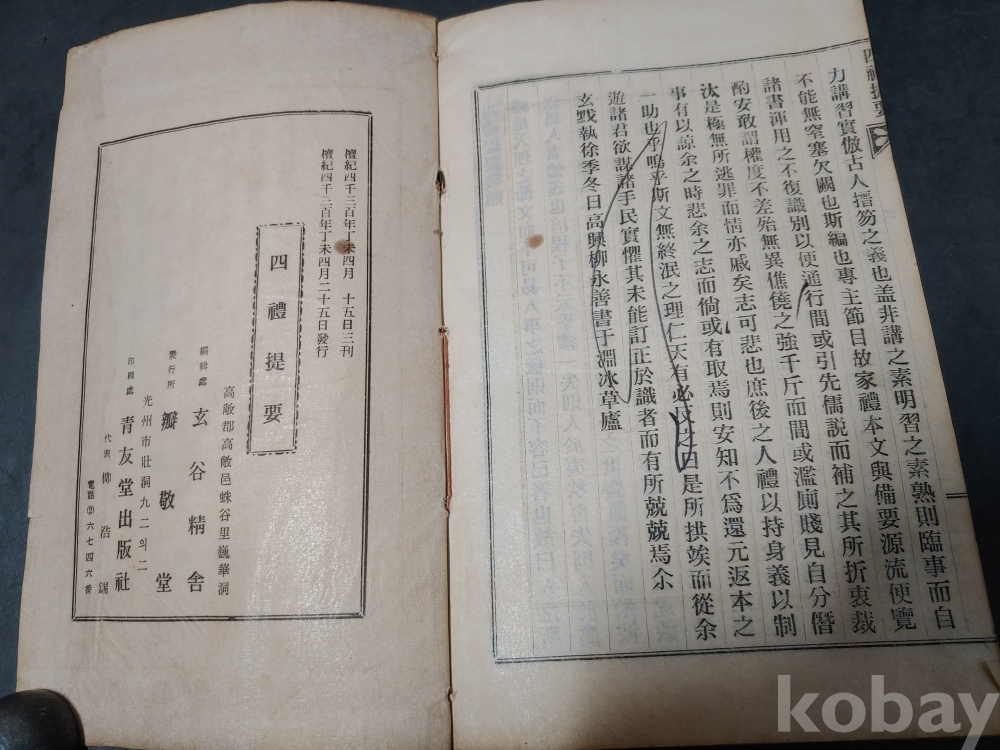 四禮提要
力講習實倣古人搢笏之義也盖非講之素明習之素熟則臨事而自
不能無窒塞欠闕也斯編也專主節目故家禮本文與備要源流便覽
諸書渾用之不復識別以便通行間或引先儒說而補之其所折衷裁
酌安敢謂權度不差殆無異僬僥之強千斤而間或濫廁賤見自分僭
汰是極無所逃罪而情亦戚矣志可悲也庶後之人禮以持身義以制
事有以諒余之時悲余之志而倘或有取焉則安知不爲還元返本之
一助也乎嗚乎斯文無終泯之理仁天有必反之日是所拱竢而從余
遊諸君欲謀諸手民實懼其未能訂正於識者而有所兢兢焉尒
玄黓執徐季冬日高興柳永善書于淵冰草廬
檀紀四千三百年丁未四月 十五日三刊
檀紀四千三百年丁未四月二十五日發行
四禮提要
高敞郡高敞邑蛛谷里巍華洞
編輯處 玄谷精舍
發行所 瓣敬堂
光州市壯洞九二의二
印刷處 青友堂出版社
代表 柳浩錫
電話②六七四六番
kobay